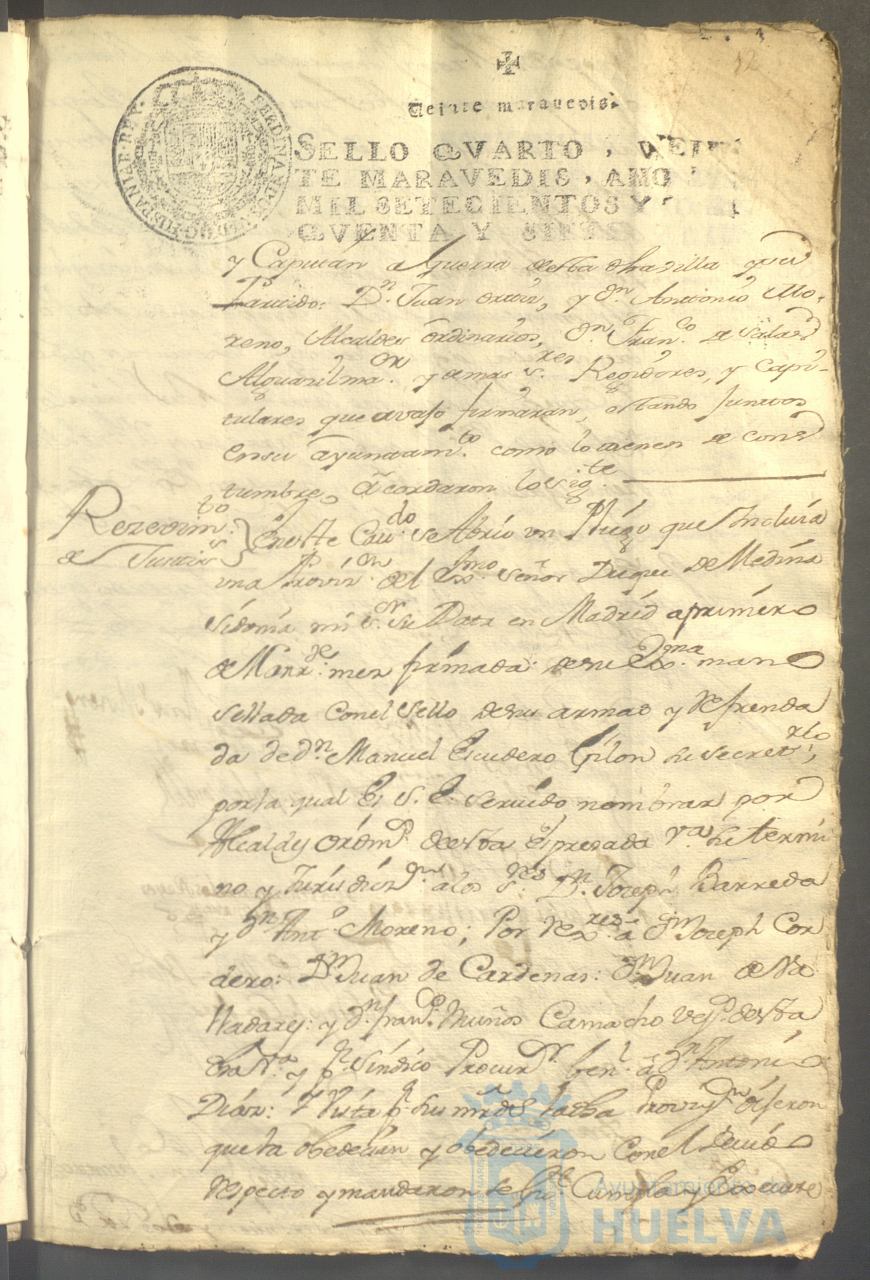 12
Veinte maravedis.
FERDINANDUS VI D.G. HISPANIAR. REX.
SELLO QVARTO, VEIN
TE MARAVEDIS, AÑO
MIL SETECIENTOS Y
QVENTA Y SIETE
y Capitan a Guerra desta dha villa y su
Partido: Dn Juan ortiz, y Dn Antonio Mo-
reno, Alcaldes Ordinarios, Dn Franco de salas
Alguazil maor y demas sres Regidores, y Capi-
tulares que avajo firmaran, estando Juntos
en su ayuntamto como lo tienen de cons
tumbre, acordaron lo sigte
Rezevimto
de Justicias
En este Cavdo se Abrio un Pliego que Incluia
una Provion del Exmo señor Duque de Medina
sidonia mi sor su Data en Madrid a primero
de mes firmada de su Exma mano
sellada con el sello de sus armas y Refrenda
da de dn Manuel Escudero Gilon su secretrio,
por la qual Es S. E. servido nombrar por
Alcaldes ordins desta Expresada va su termi
no y Jurisdizn a los sres Dn Joseph Barreda
y Dn Anto Moreno; Por Rexres a Dn Joseph Cor
dero: Dn Juan de Cardenas: Dn Juan de Va
lladares: y Dn Franco Muños Camacho vezs desta
dha va y pr Sindico Procurr Genl a Dn Antonio
Dias: Y Vista pr sus mrdes la dha Provizn dijeron
que la obedecian y obedecieron con el devido
respecto y mandaron se Gde Cumpla y Execute
Ayuntamiento de
HUELVA